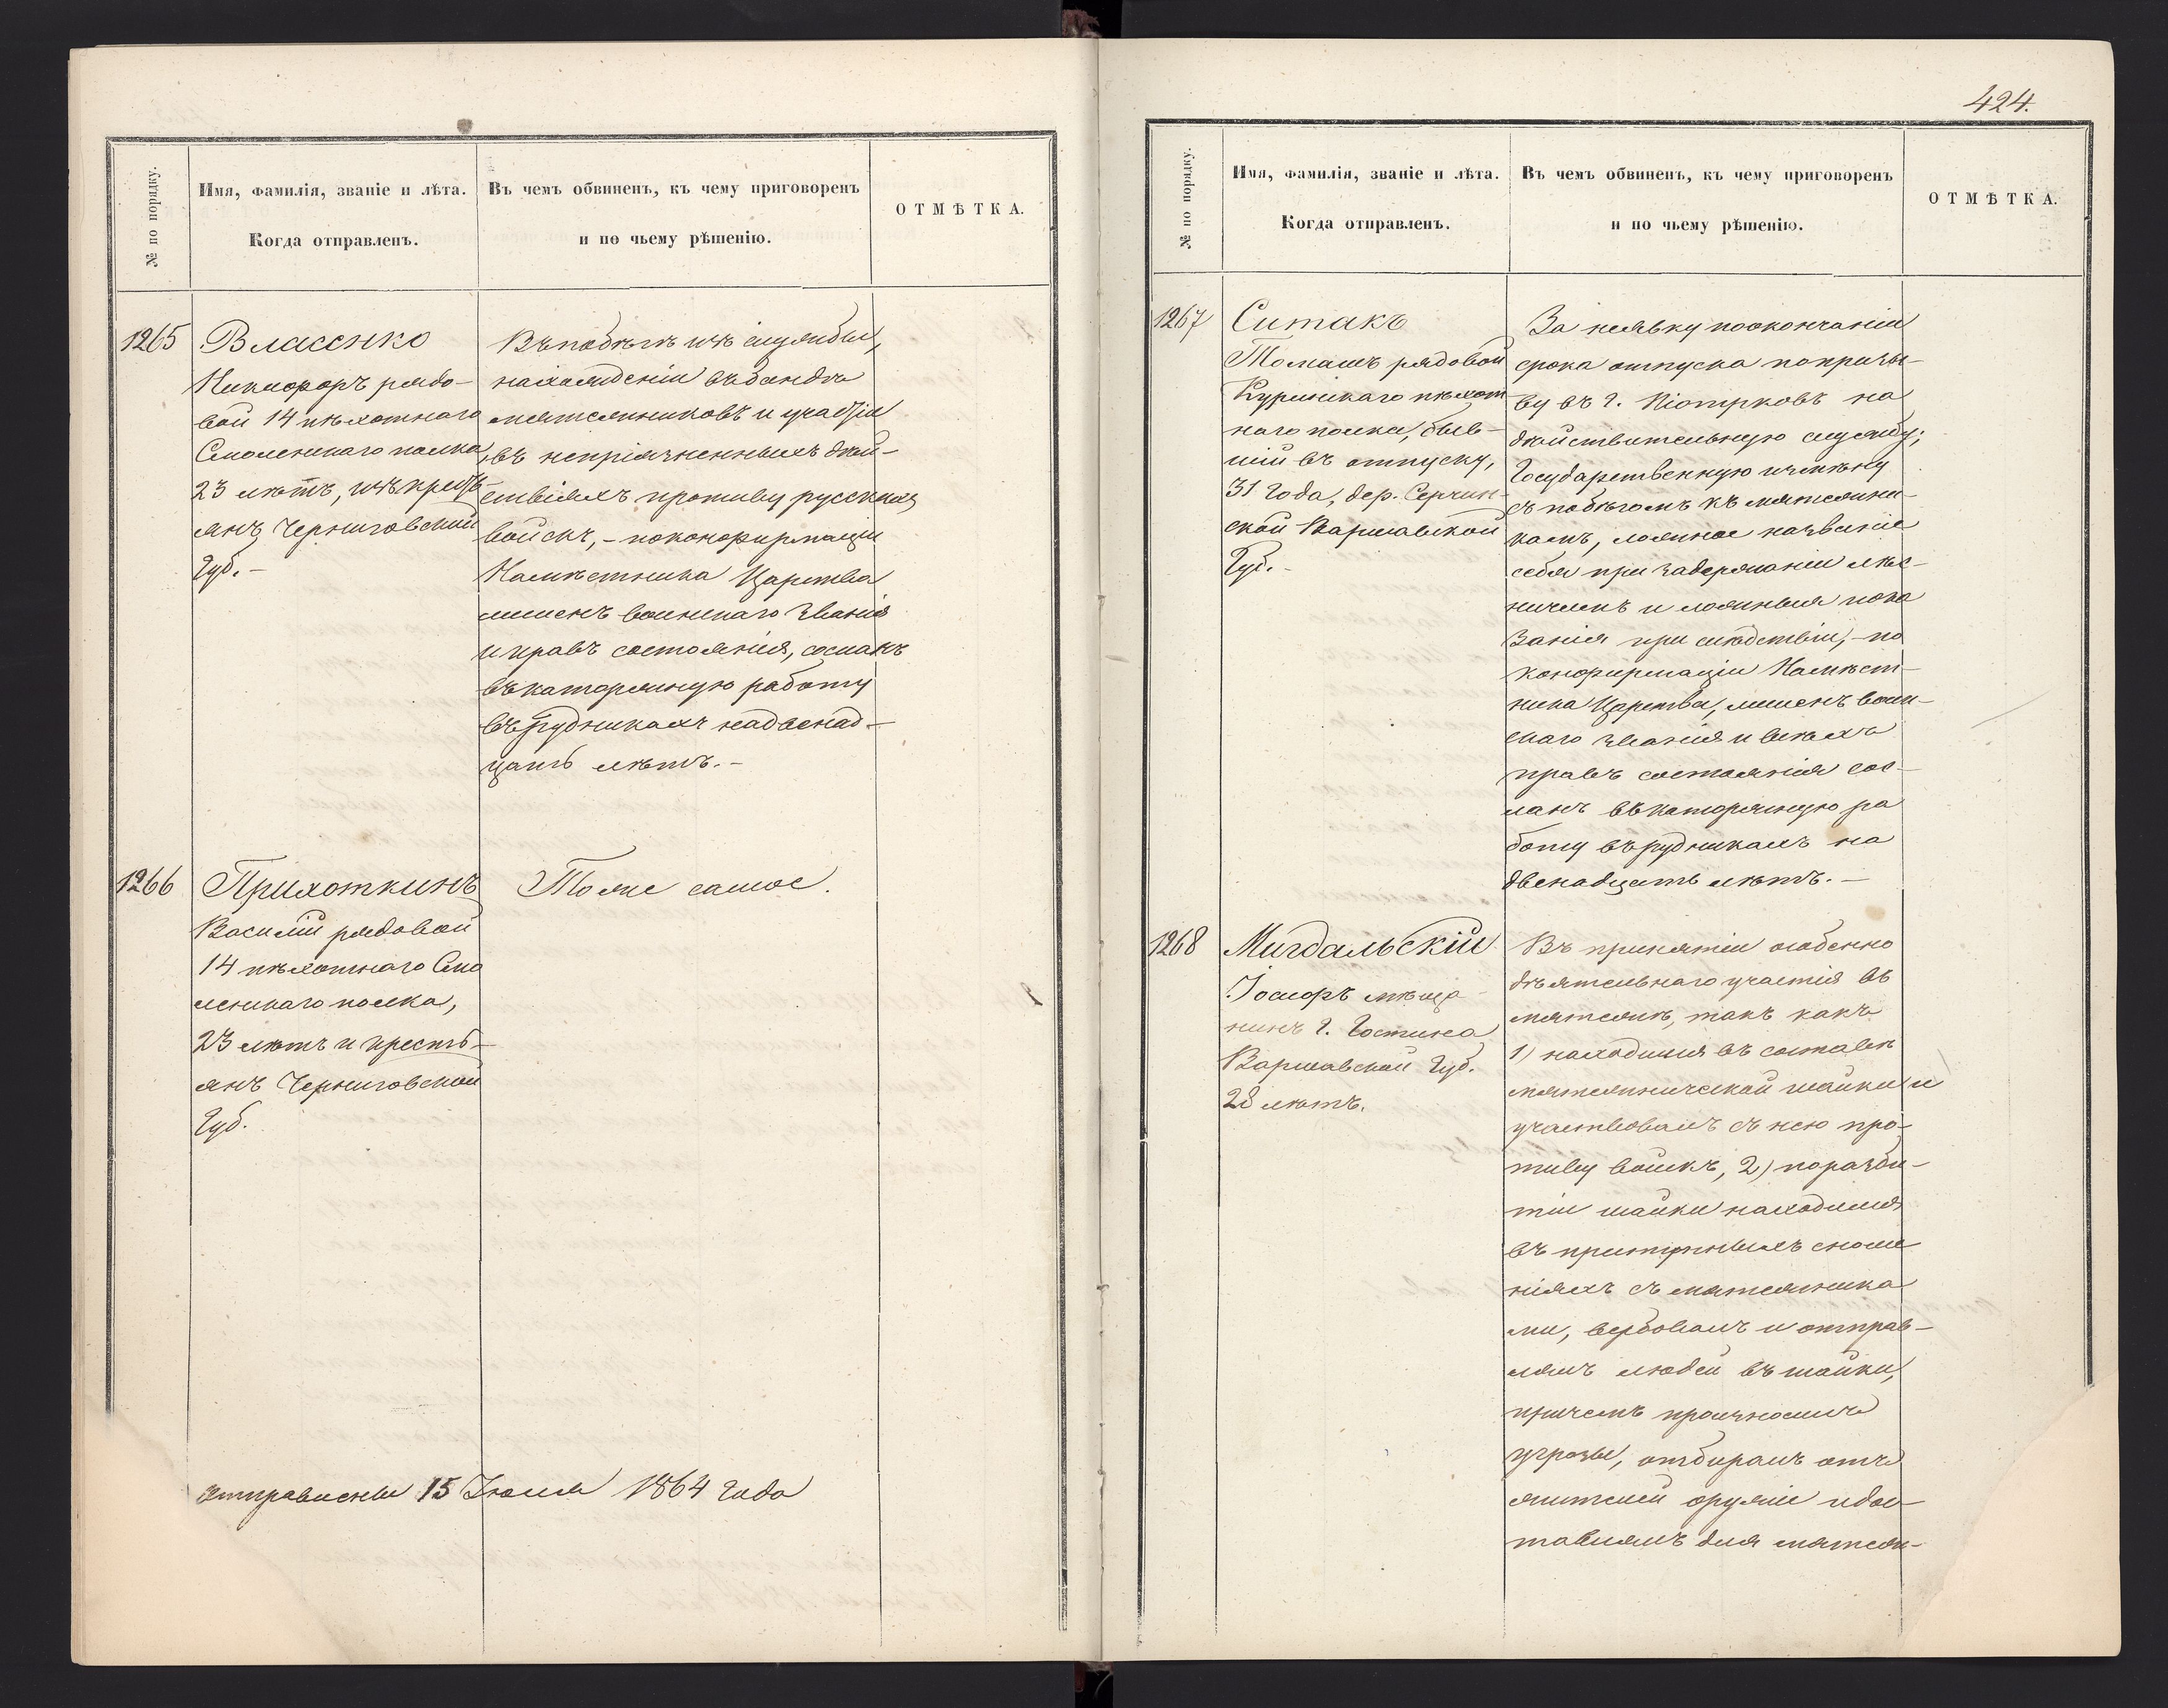 № по порядку.
Имя, фамилія, званіе и лѣта.
Когда отправленъ.
Въ чемъ обвиненъ, къ чему приговоренъ
и по чьему рѣшенію.
ОТМѢТКА.
1265
Власенко
Никифоръ рядо-
вой 14 пѣхотнаго
Смоленскаго полка,
23 лѣтъ, изъ кресть-
янъ Черниговской
Губ.-
Въ побѣгѣ изъ службы,
нахожденіи въ бандѣ
мятежниковъ и участіи
въ непріязненныхъ дѣй-
ствіяхъ противу русскихъ
войскъ, - по конфирмаціи
Намѣстника Царства
лишенъ воинскаго званія
и правъ состоянія, сосланъ
въ каторжную работу
въ рудникахъ на двенад-
цать лѣтъ.-
1266
Прихоткинъ
Василій рядовой
14 пѣхотнаго Смо
ленскаго полка,
23 лѣтъ и кресть-
янъ Черниговской
Губ.
Тоже самое.
Отправлены 15 Іюля 1864 года
424.
№ по порядку.
Имя, фамилія, званіе и лѣта.
Когда отправленъ.
Въ чемъ обвиненъ, къ чему приговоренъ
и по чьему рѣшенію.
ОТМѢТКА.
1267
Ситакъ
Томашъ рядовой
Куринскаго пѣхот
наго полка, быв-
шій въ отпуску,
31 года, дер.
ской Варшавской
Губ.-
За неявку по окончаніи
срока отпуска по призы-
ву въ г. Піотрковъ на
дѣйствительную службу;
Государственную измѣну
съ побѣгомъ къ мятежни-
камъ, ложное названіе
себя при задержаніи лѣс-
ничемъ и ложныя пока
занія при слѣдствіи, - по
конфирмаціи Намѣст-
ника Царства, лишенъ воин-
скаго званія и всѣхъ
правъ состоянія сос-
ланъ въ каторжную ра
боту въ рудникахъ на
двенадцать лѣтъ.-
1268
Мигдальскій
Іосифъ мѣща-
нинъ г. Гостина
Варшавской Губ.
28 лѣтъ.
Въ принятіи особенно
дѣятельнаго участія въ
мятежѣ, такъ какъ
1) находился въ составѣ
мятежнической шайки и
участвовалъ съ нею про-
тиву войскъ, 2) по разби-
тіи шайки находился
въ преступныхъ сноше
ніяхъ съ мятежника
ми, вербовалъ и отправ-
лялъ людей въ шайки,
причемъ произносилъ
угрозы, отбиралъ отъ
жителей оружіе и дос-
тавлялъ для мятеж-